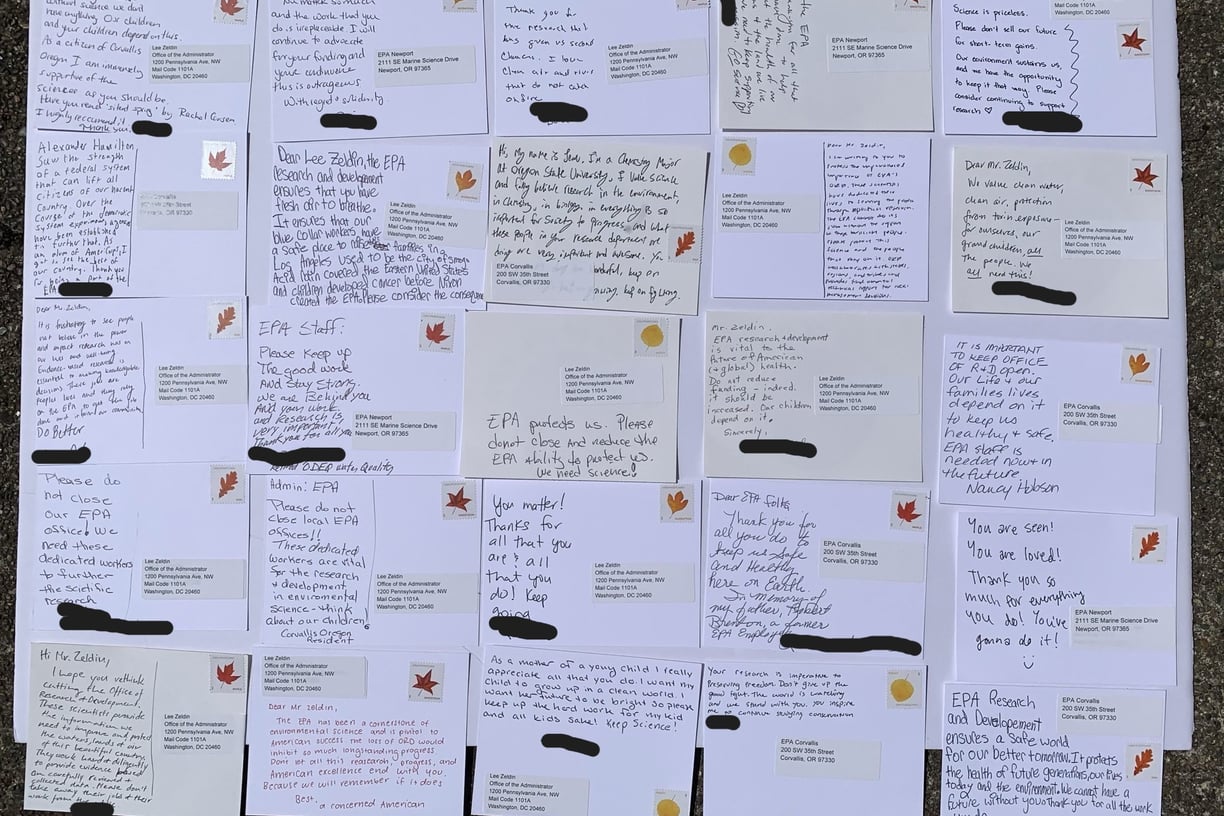 without science we don't
have anything. Our children
and your children depend on this.
As a citizen of Corvallis
Oregon I am immensely
supportive of the
science as you should be.
Have you read "silent spring" by Rachel Carson
I highly recommend it
Thank you,
Lee Zeldin
Office of the Administrator
1200 Pennsylvania Ave, NW
Mail Code 1101A
Washington, DC 20460
and the work that you
do is irreplaceable. I will
continue to advocate
for your funding and
your endurance
this is outrageous
With regard & solidarity.
EPA Newport
2111 SE Marine Science Drive
Newport, OR 97365
Thank you for
the research that
has given us second
chances. I love
clean air and rivers
that do not catch
on fire.
Lee Zeldin
Office of the Administrator
1200 Pennsylvania Ave, NW
Mail Code 1101A
Washington, DC 20460
EPA Newport
2111 SE Marine Science Drive
Newport, OR 97365
Science is priceless.
Please don't sell our future
for short-term gains.
Our environment sustains us,
and we have the opportunity
to keep that way. Please
consider continuing to support
research ♡
Mail Code 1101A
Washington, DC 20460
Alexander Hamilton
saw the strength
of a federal system
that can lift all
citizens of our
Country. Over the
Course of the democratic
system
have been established
further that. As
an alum of AmeriCorps I
our country. Thank you
for being a part of the
EPA
Dear Lee Zeldin, the EPA
research and development
ensures that you have
fresh air to breathe.
It ensures that our
blue collar workers have
a safe place to raise families in
Los Angeles used to be the city of smog
Acid rain covered the Eastern United States
and children developed cancer before Nixon
created the EPA. Please consider the consequences
Lee Zeldin
Office of the Administrator
1200 Pennsylvania Ave, NW
Mail Code 1101A
Washington, DC 20460
Hi, My name is I'm a Chemistry Major
at Oregon State University. I value science
and fully believe research in the environment,
in Chemistry, in biology, in everything is so
important for Society to progress, and what
these people in your research department are
doing are very important and awesome. You
keep on
keep on fighting.
EPA Corvallis
200 SW 35th Street
Corvallis, OR 97330
Dear Mr. Zeldin,
I am writing to you to
Lee Zeldin
Office of the Administrator
1200 Pennsylvania Ave, NW
Mail Code 1101A
Washington, DC 20460
Dear Mr. Zeldin,
We value clean water,
clean air, protection
from toxin exposure –
for ourselves, our
grand children, all
The people. We
all need this!
Lee Zeldin
Office of the Administrator
1200 Pennsylvania Ave, NW
Mail Code 1101A
Washington, DC 20460
Dear Mr Zeldin,
It is frustrating to see people
not believe in the power
and impact research has on
our lives and well-being
Evidence-based research is
essential to making knowledgeable
decisions. These jobs are
people's lives and they rely
on the EPA to get
Do Better
Lee Zeldin
Office of the Administrator
1200 Pennsylvania Ave, NW
Mail Code 1101A
Washington, DC 20460
EPA Staff:
Please Keep up
The good work
And stay strong.
we are Behind you
And your work
and Research is
very important.
Thank you for all you
Retired ODEQ Water Quality
EPA Newport
2111 SE Marine Science Drive
Newport, OR 97365
Lee Zeldin
Office of the Administrator
1200 Pennsylvania Ave, NW
Mail Code 1101A
Washington, DC 20460
EPA protects us. Please
do not close and reduce the
EPA ability to protect us.
We need science!
Mr. Zeldin.
EPA research & development
is vital to the
future of American
(& global) health.
Do not reduce
funding – indeed
it should be
increased. Our children
depend on it.
Sincerely,
Lee Zeldin
Office of the Administrator
1200 Pennsylvania Ave, NW
Mail Code 1101A
Washington, DC 20460
IT IS IMPORTANT
TO KEEP OFFICE
OF R+D open.
Our Life & our
families lives
depend on it
to keep us
healthy & safe.
EPA staff is
needed now & in
the future.
Nancy Hobson
EPA Corvallis
200 SW 35th Street
Corvallis, OR 97330
Please do
not close
Our EPA
office! We
need these
dedicated workers
to further
the scientific
research
Lee Zeldin
Office of the Administrator
1200 Pennsylvania Ave, NW
Mail Code 1101A
Washington, DC 20460
Admin: EPA
Please do not
close local EPA
offices!!
These dedicated
workers are vital
for the research
& development
in enviromental
science - think
about our children!
Corvallis Oregon
Resident
Lee Zeldin
Office of the Administrator
1200 Pennsylvania Ave, NW
Mail Code 1101A
Washington, DC 20460
You matter!
Thanks for
all that you
are & all
that you
do! Keep
going
Lee Zeldin
Office of the Administrator
1200 Pennsylvania Ave, NW
Mail Code 1101A
Washington, DC 20460
Dear EPA folks,
Thank you for
all you do to
keep us safe
and Healthy
here on Earth.
In memory of
my father, Robert
a former
EPA Employee
EPA Corvallis
200 SW 35th Street
Corvallis, OR 97330
You are seen!
You are loved!
Thank you so
much for everything
you do! You've
gonna do it!
EPA Newport
2111 SE Marine Science Drive
Newport, OR 97365
Hi Mr. Zeldin,
I hope you rethink
cutting the Office of
Research & Development.
These scientists provide
the information to
improve and protect
the waters, lands of our
of this beautiful country.
They work hard & diligently
to provide evidence based
and carefully
collected data. Please don't
take away their jobs & their
work from the
Lee Zeldin
Office of the Administrator
1200 Pennsylvania Ave, NW
Mail Code 1101A
Washington, DC 20460
Lee Zeldin
Office of the Administrator
1200 Pennsylvania Ave, NW
Mail Code 1101A
Washington, DC 20460
Dear Mr Zeldin,
The EPA has been a cornerstone of
environmental science and is pivotal to
American success. the loss of ORD would
inhibit so much longstanding progress
Dont let all this research, progress, and
American excellence end with you,
Because we will remember if it does
Best,
a concerned American
As a mother of a young child I really
appreciate all that you do. I want my
child to grow up in a clean world. I
want her future to be bright so please
keep up the hard work for my kid
and all kids sake! Keep Science!
Lee Zeldin
Office of the Administrator
1200 Pennsylvania Ave, NW
Mail Code 1101A
Washington, DC 20460
Your research is imperative to
preserving freedom. Don't give up the
good fight. The world is watching
and we stand with you. You inspire
me to continue studying conservation
EPA Corvallis
200 SW 35th Street
Corvallis, OR 97330
EPA Research
and Developement
ensures a safe world
for our better tomorrow. It protects
the health of future generations, our lives
today and the environment. We cannot have a
future without you. Thank you for all the work
EPA Corvallis
200 SW 35th Street
Corvallis, OR 97330